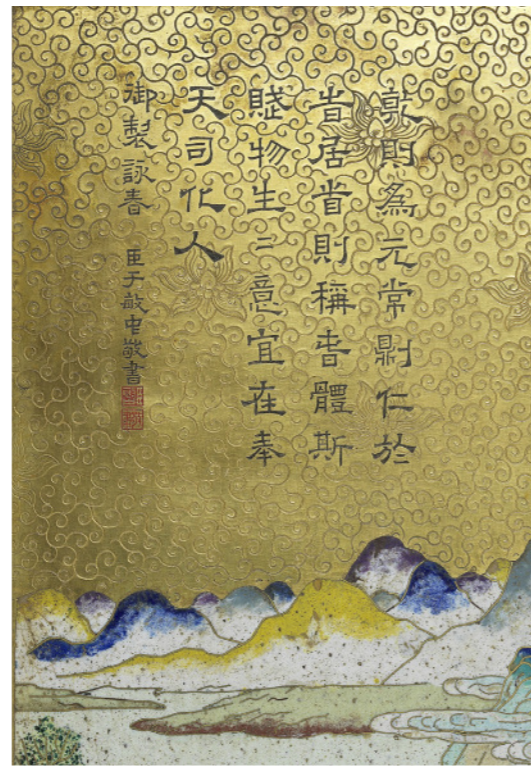 乾則為元常則仁於
旹居首則稱旾體斯
賦物生〻意宜在奉
天司化人
御製詠春 臣于敏中敬書